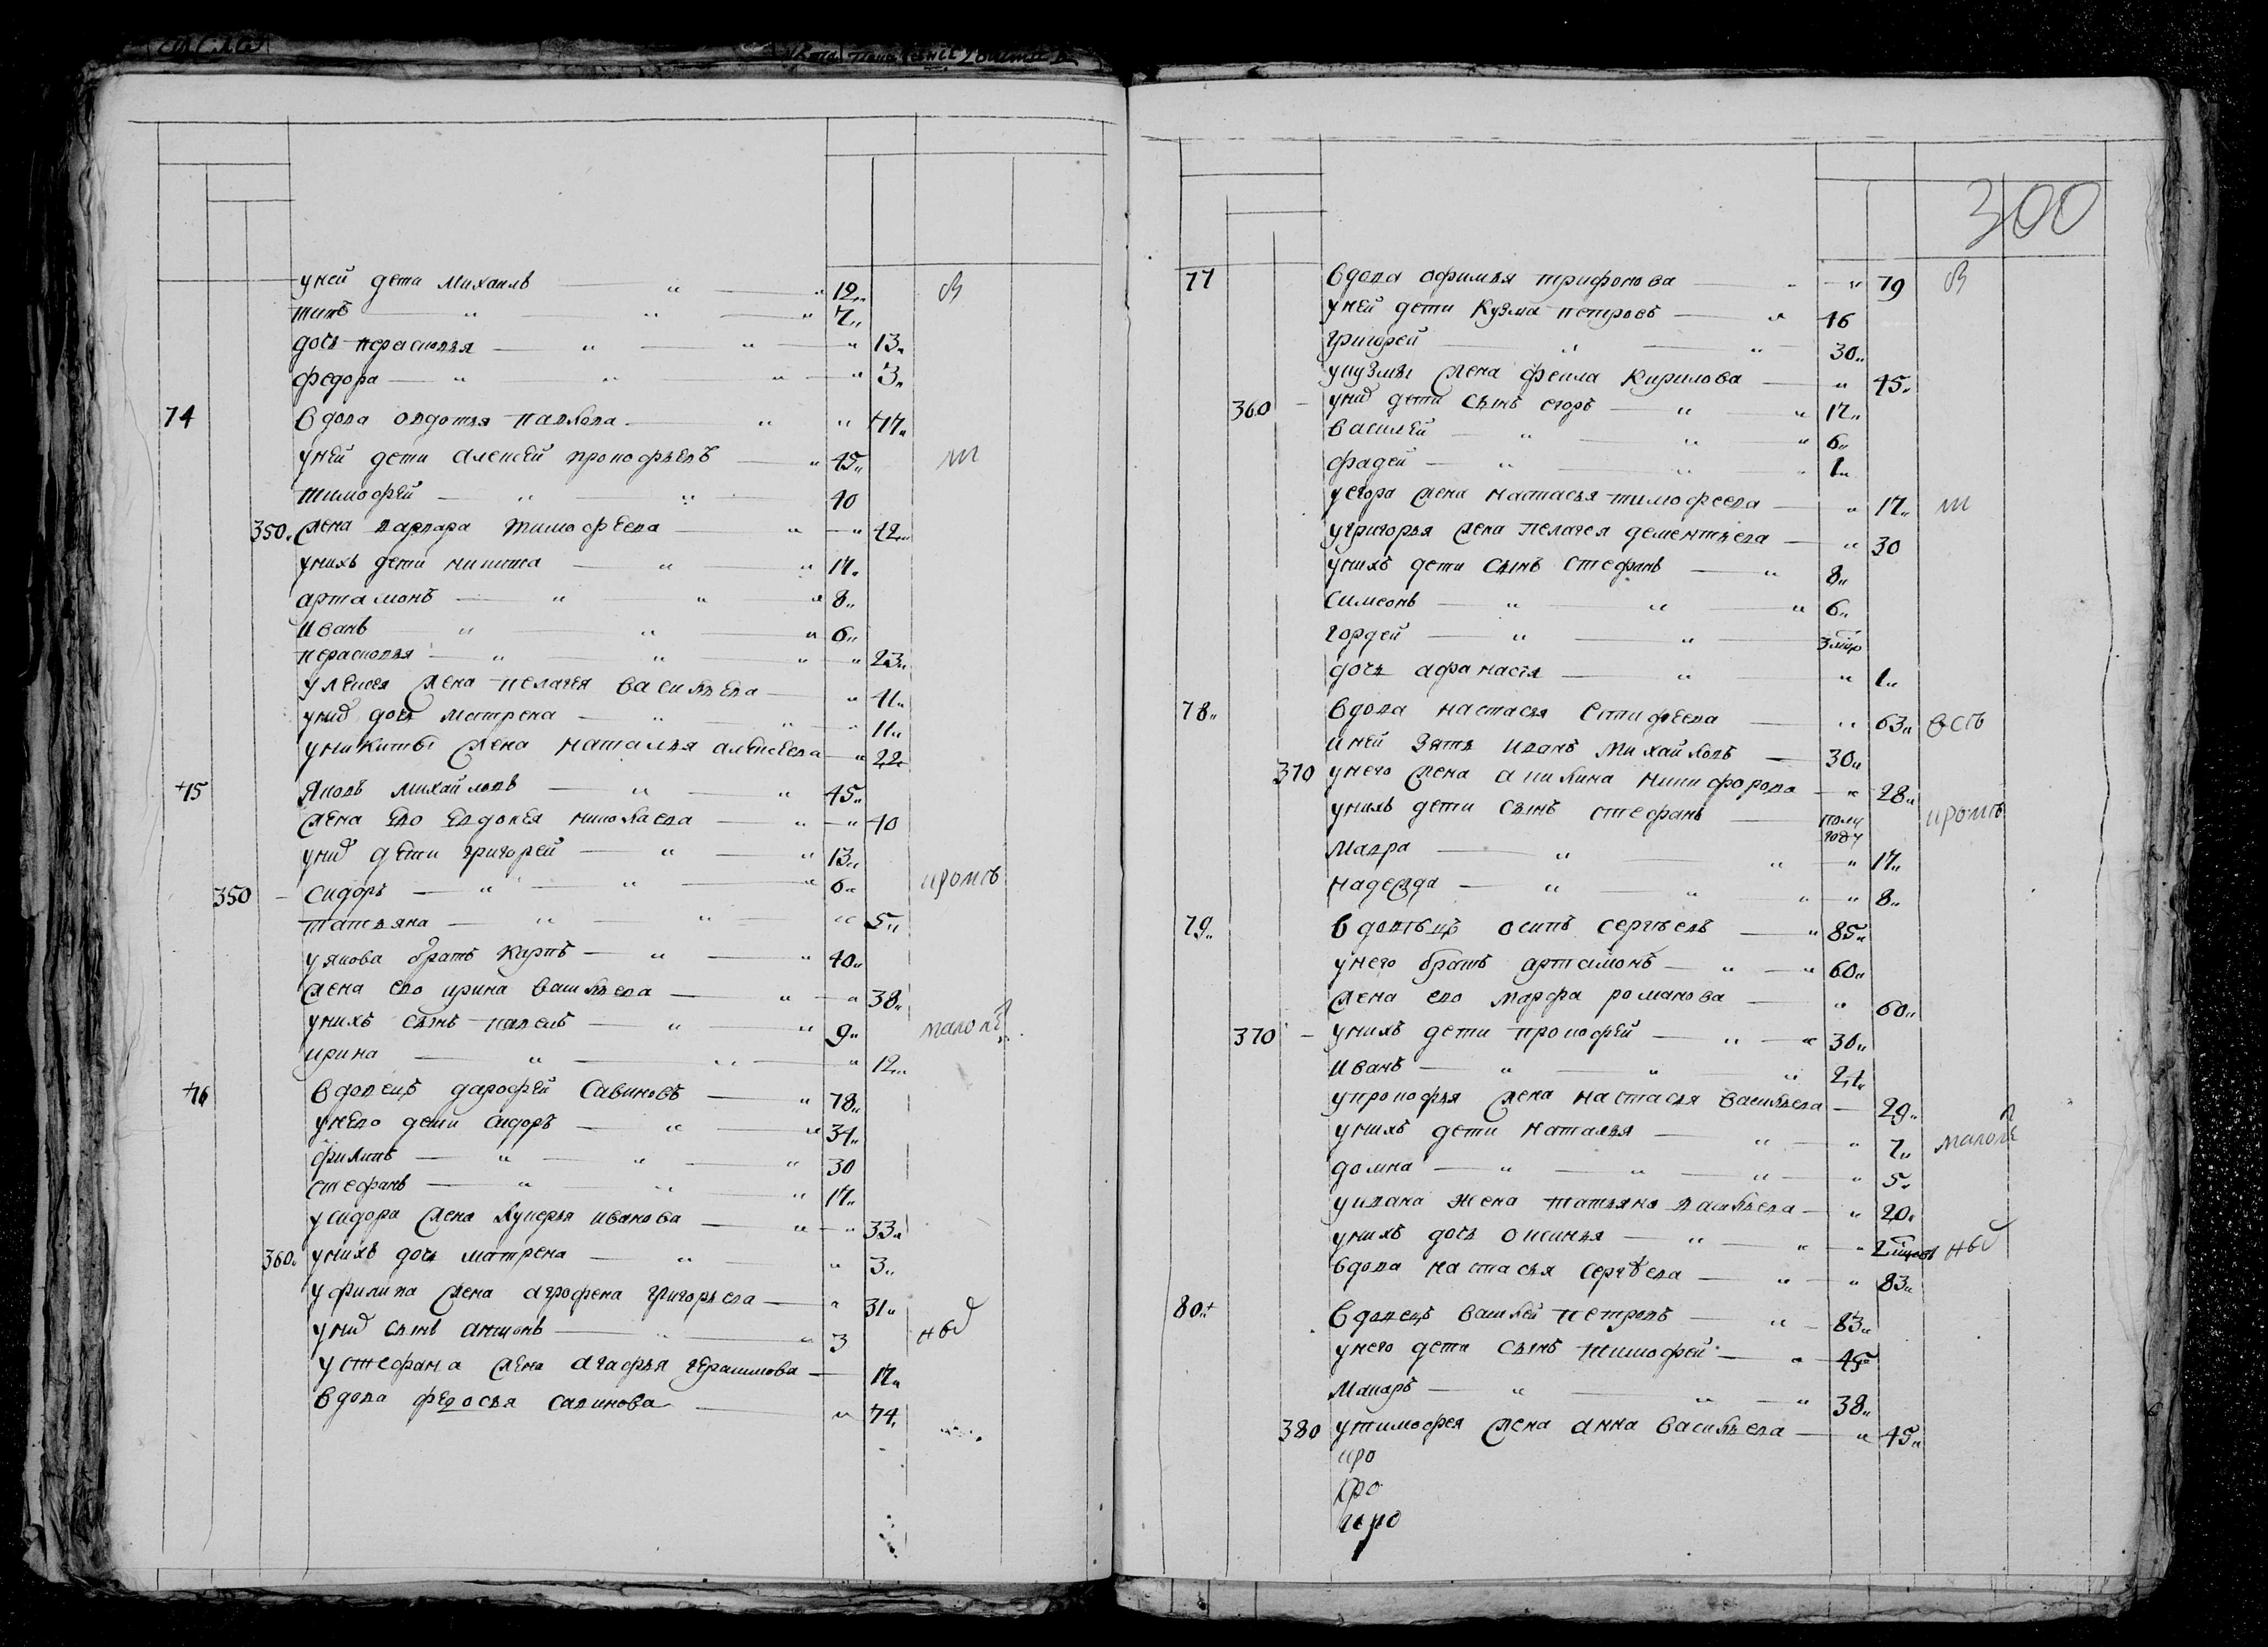 уней дети Михаилъ 12 В
титъ 7
дочь перасковья 13
федора 3
74 вдова овдотья павлова 77
уней дети алексей прокофьевъ 45 ш
тимофей 40
350 жена варвара тимофѣева 42
унихъ дети никита 17
артамонъ 8
иванъ 6
перасковья 23
улексея жена пелагея васильева 41
унихъ дочь матрена 11
уникиты жена наталья алексеева 22
75 яковъ михайловъ 45
жена ево евдокея николаева 40
унихъ дети григорей 13
350 сидоръ 6 испов
татьяна 5
уякова братъ карпъ 40
жена ево ирина васильева 38
унихъ сынъ павелъ 9 малолѣ
ирина 12
76 вдовецъ дарофей савиновъ 78
унево дети сидоръ 34
филипъ 30
стефанъ 17
усидора жена лукерья иванова 33
360 унихъ дочь матрена 3
уфилипа жена агрофена григорьева 31
унихъ сынъ антонъ 3 нбд
устефана жена агафья герасимова 17
вдова федосья савинова 74
300
77 вдова офимья трифонова 79 В
уней дети Кузма петровъ 46
григорей 30
укузмы жена фекла кирилова 45
360 унихъ дети сынъ егоръ 17
василей 6
фадей 1
уегора жена настасья тимофеева 17 ш
угригорья жена пелагея дементьева 30
унихъ дети сынъ стефанъ 8
симеонъ 6
гордей 3 мцо
дочь афанасія 1
78 вдова настасья естифѣева 63 всѣ
уней зять иванъ михайловъ 30
370 унего жена акилина никифорова 28
унихъ дети сынъ стефанъ полу году
мавра 17
надежда 8
79 вдовецъ осипъ сергѣевъ 85
унего братъ артамонъ 60
жена ево марфа романова 60
370 унихъ дети прокофей 30
иванъ 21
упрокофья жена настасья васильева 29
унихъ дети наталья 7 малолѣ
домна 5
уивана жена татьяна васильева 20
унихъ дочь оксинья 2 нбд
вдова настасья сергѣева 83
80 вдовецъ василей петровъ 83
унего дети сынъ тимофей 45
макаръ 38
380 утимофея жена анна васильева 45
иро
кро